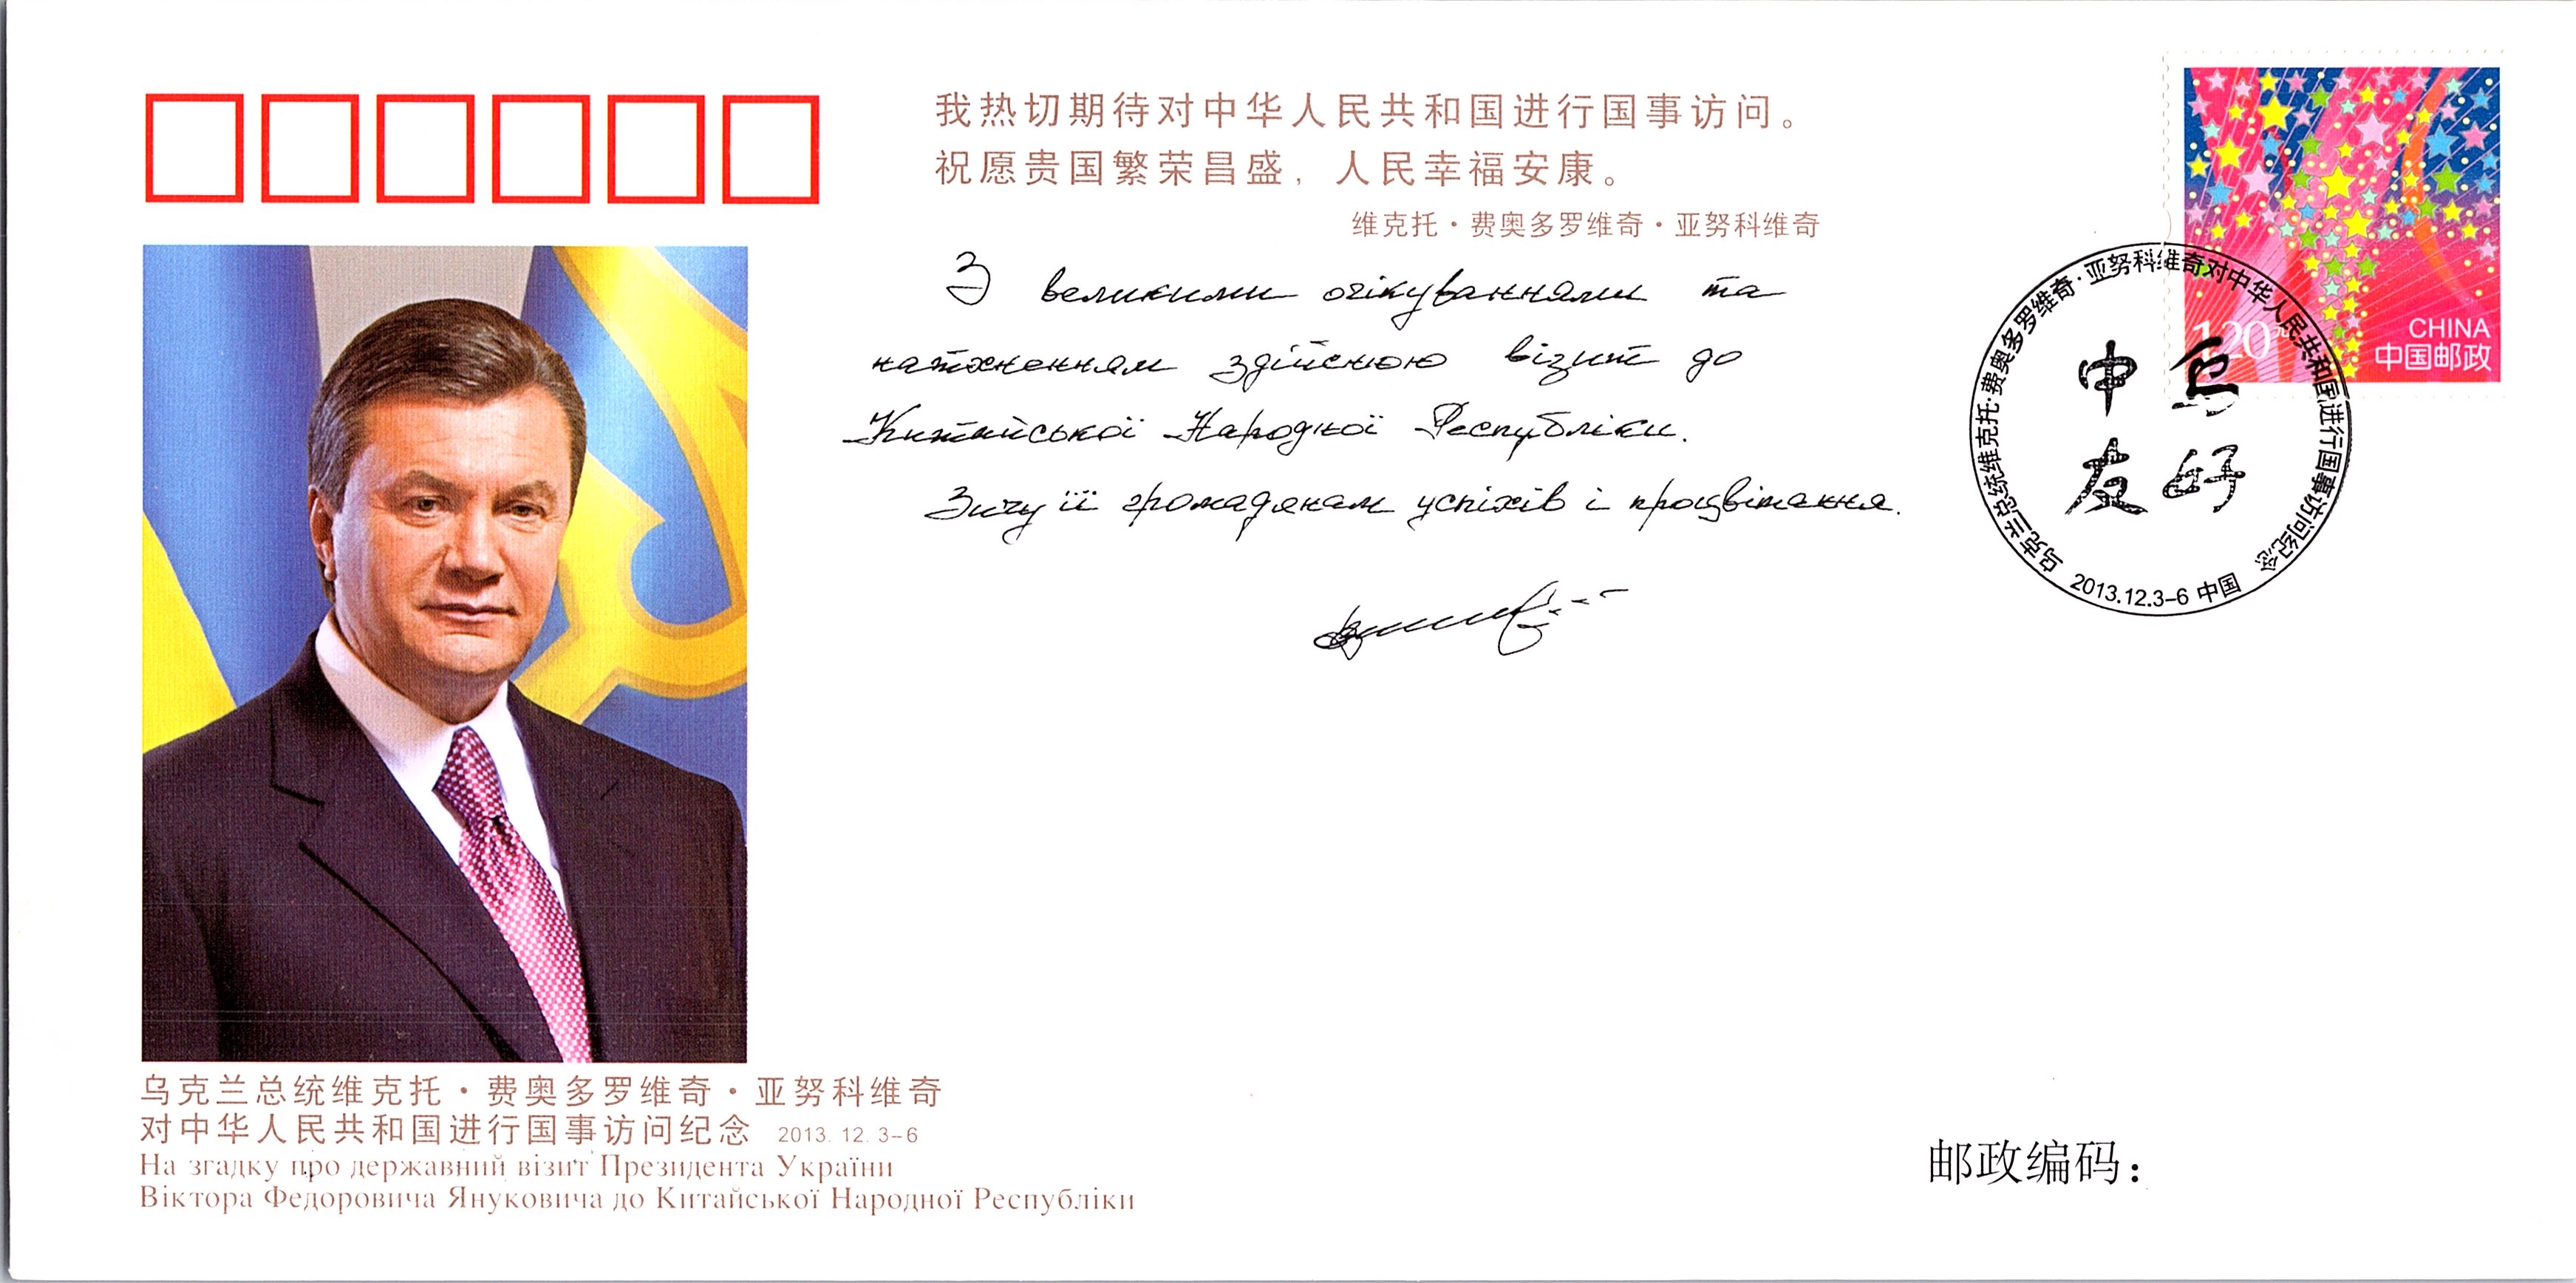 我热切期待对中华人民共和国进行国事访问。
祝愿贵国繁荣昌盛，人民幸福安康。
维克托·费奥多罗维奇·亚努科维奇
З великими очікуваннями та
натхненням здійснюю візит до
Китайської Народної Республіки.
Зичу її громадянам успіхів і процвітання.
1.20元
CHINA
中国邮政
乌克兰总统维克托·费奥多罗维奇·亚努科维奇对中华人民共和国进行国事访问纪念
中乌
友好
2013.12.3-6 中国
乌克兰总统维克托·费奥多罗维奇·亚努科维奇
对中华人民共和国进行国事访问纪念 2013. 12. 3-6
На згадку про державний візит Президента України
Віктора Федоровича Януковича до Китайської Народної Республіки
邮政编码：